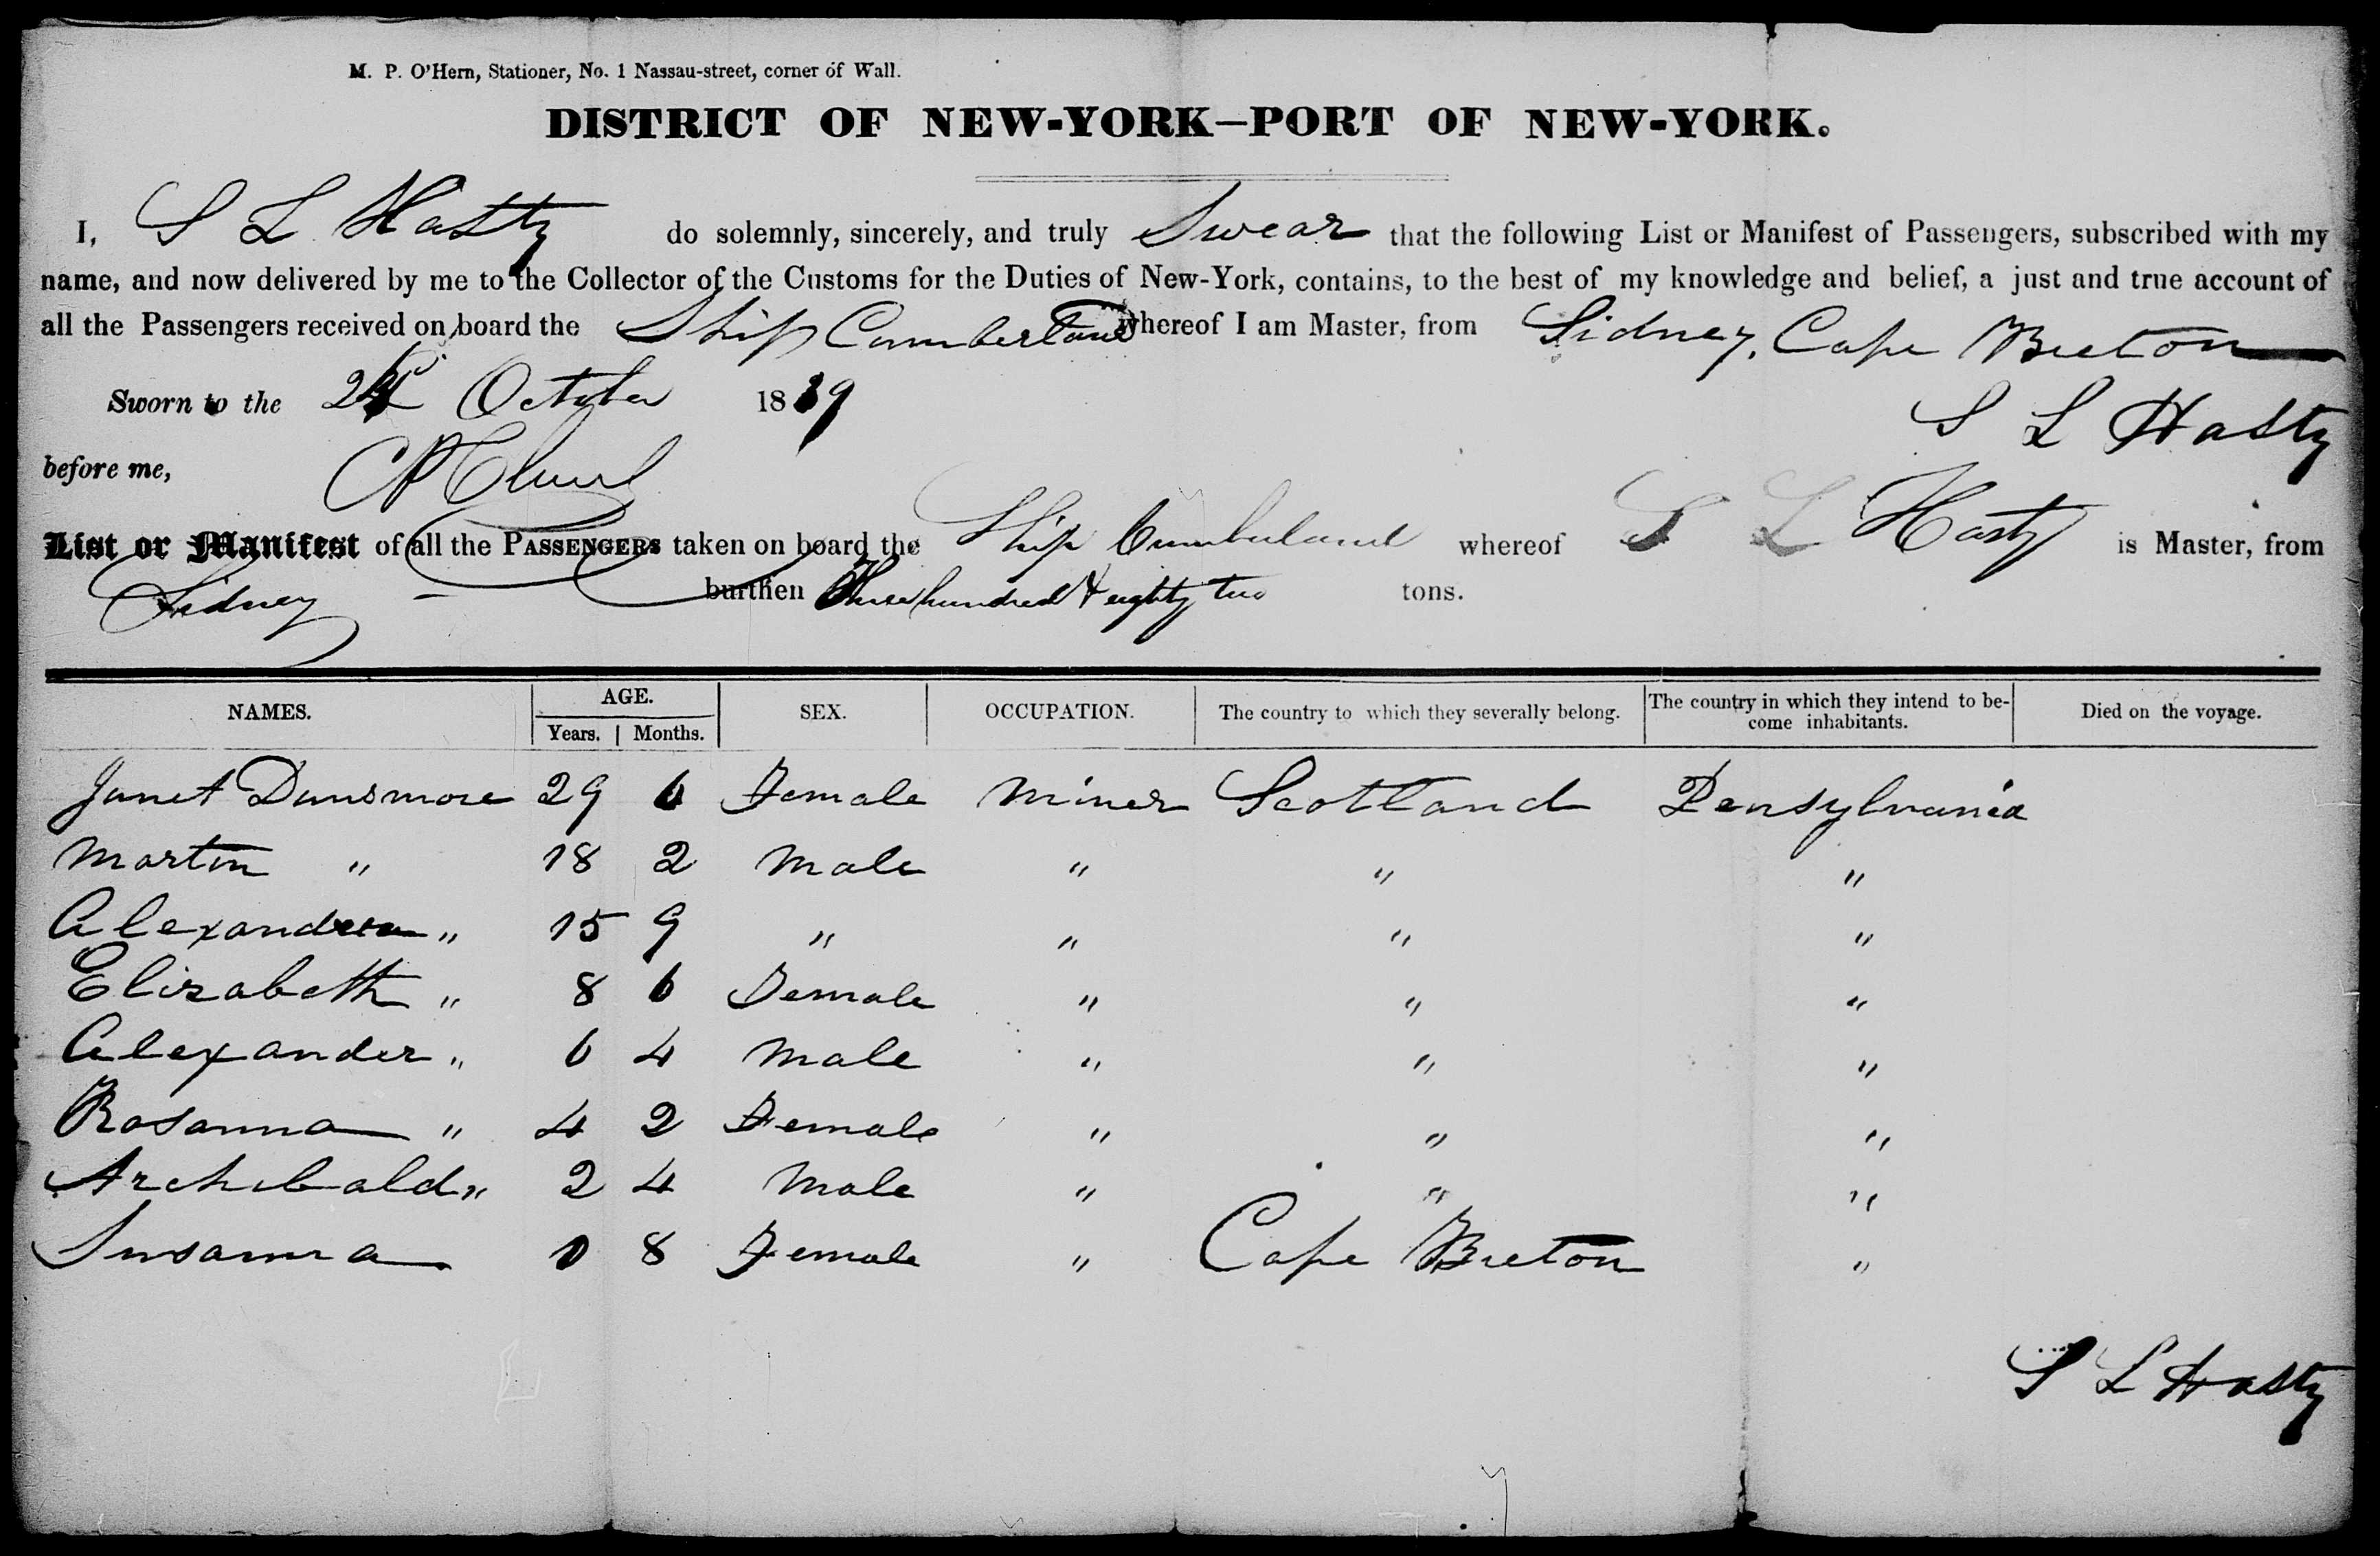 M. P. O'Hern, Stationer, No. 1 Nassau-street, corner of Wall.
DISTRICT OF NEW-YORK—PORT OF NEW-YORK.
I, S L Hasty do solemnly, sincerely, and truly Swear that the following List or Manifest of Passengers, subscribed with my
name, and now delivered by me to the Collector of the Customs for the Duties of New-York, contains, to the best of my knowledge and belief, a just and true account of
all the Passengers received on board the Ship Cumberland whereof I am Master, from Sidney, Cape Breton
Sworn to the October 1839
S L Hasty
before me,
List or Manifest of all the PASSENGERS taken on board the Ship Cumberland whereof S L Hasty is Master, from
Sidney burthen Three hundred & eighty two tons.
NAMES. AGE. Years. Months. SEX. OCCUPATION. The country to which they severally belong. The country in which they intend to become inhabitants. Died on the voyage.
Janet Dunsmore 29 6 Female Miner Scotland Pensylvania
Martin " 18 2 Male " " "
Alexandrea " 15 9 " " " "
Elizabeth " 8 6 Female " " "
Alexander " 6 4 Male " " "
Rosanna " 4 2 Female " " "
Archibald " 2 4 Male " " "
Susanna 0 8 Female " Cape Breton "
S L Hasty